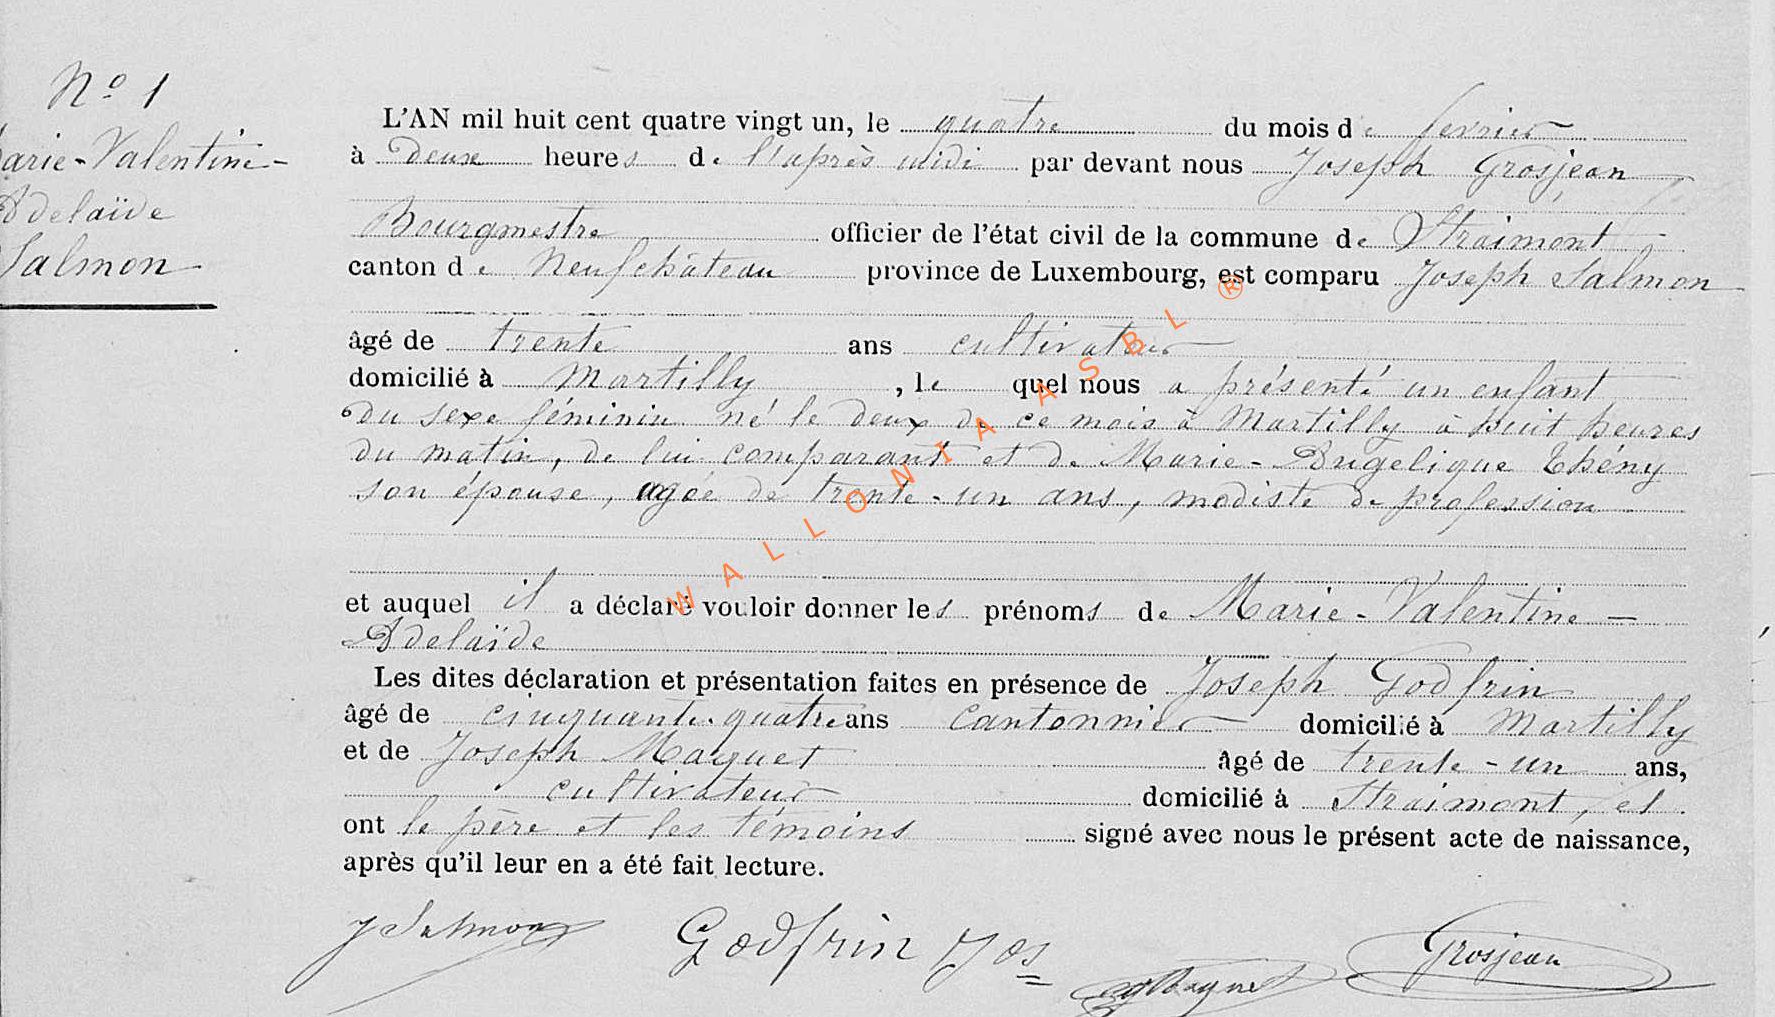 N° 1
Marie-Valentine-
Adelaïde
Salmon
L'AN mil huit cent quatre vingt un, le quatre du mois de fevrier
à deux heures de l'après midi par devant nous Joseph Grosjean
Bourgmestre officier de l'état civil de la commune de Straimont
canton de Neufchâteau province de Luxembourg, est comparu Joseph Salmon
âgé de trente ans cultivateur
domicilié à Martilly, le quel nous a présenté un enfant
du sexe féminin né le deux de ce mois à Martilly à huit heures
du matin, de lui comparant et de Marie-Angelique Thény
son épouse, agée de trente-un ans, modiste de profession
et auquel il a déclaré vouloir donner les prénoms de Marie-Valentine-
Adelaïde
Les dites déclaration et présentation faites en présence de Joseph Godfrin
âgé de cinquante-quatre ans cantonnier domicilié à Martilly
et de Joseph Maquet âgé de trente-un ans,
cultivateur domicilié à Straimont, et
ont le père et les témoins signé avec nous le présent acte de naissance,
après qu'il leur en a été fait lecture.
J Salmon Godfrin Jos Maquet Grosjean
WALLONIA ASBL ®